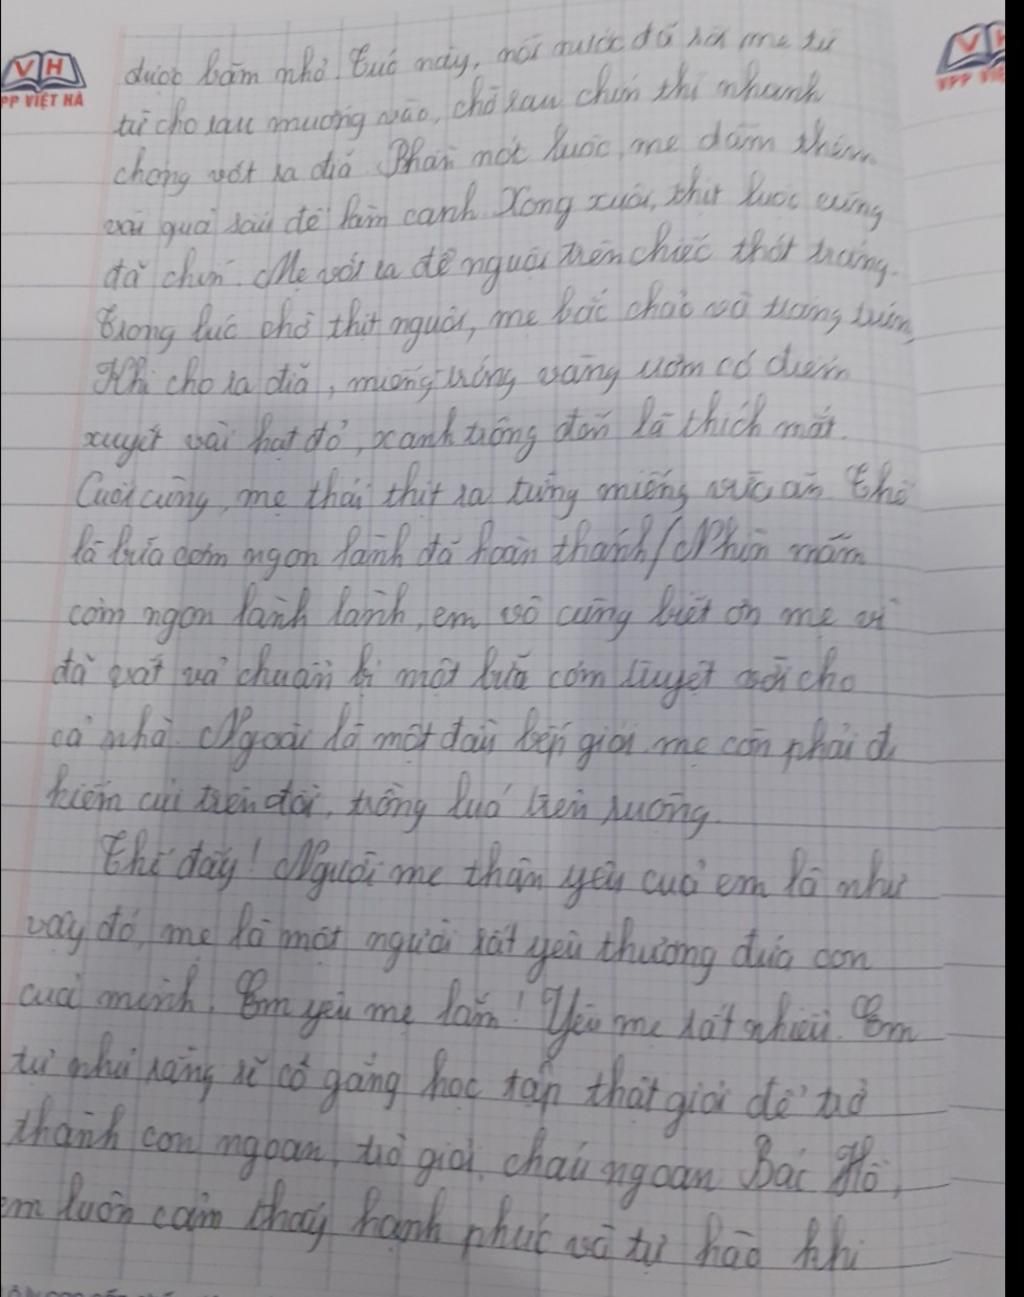 VH
PP VIỆT HÀ
VPP VIỆ
được băm nhỏ. Lúc này, nồi nước đã sôi mẹ từ
từ cho rau muống vào, chờ rau chín thì nhanh
chóng vớt ra đĩa. Phần nước luộc, mẹ dầm thêm
vài quả sấu để làm canh. Xong xuôi, thịt luộc cũng
đã chín. Mẹ vớt ra để nguội trên chiếc thớt trắng.
Trong lúc chờ thịt nguội, mẹ bắc chảo và tráng trứng
Khi cho ra đĩa, miếng trứng vàng ươm có điểm
xuyết vài hạt đỏ, xanh trông đến là thích mắt.
Cuối cùng, mẹ thái thịt ra từng miếng vừa ăn. Thế
là bữa cơm ngon lành đã hoàn thành/ Nhìn mâm
cơm ngon lành lành, em vô cùng biết ơn mẹ vì
đã vất vả chuẩn bị một bữa cơm tuyệt vời cho
cả nhà. Ngoài là một đầu bếp giỏi, mẹ còn phải đi
kiếm củi trên đồi, trồng luá trên ruộng.
Thế đấy! Người mẹ thân yêu cuả em là như
vậy đó, mẹ là một người rất yêu thương đứa con
cuả mình. Em yêu mẹ lắm! Yêu mẹ rất nhiều. Em
tự nhủ rằng sẽ cố gắng học tập thật giỏi để trở
thành con ngoan, trò giỏi, cháu ngoan Bác Hồ,
em luôn cảm thấy hạnh phúc và tự hào khi